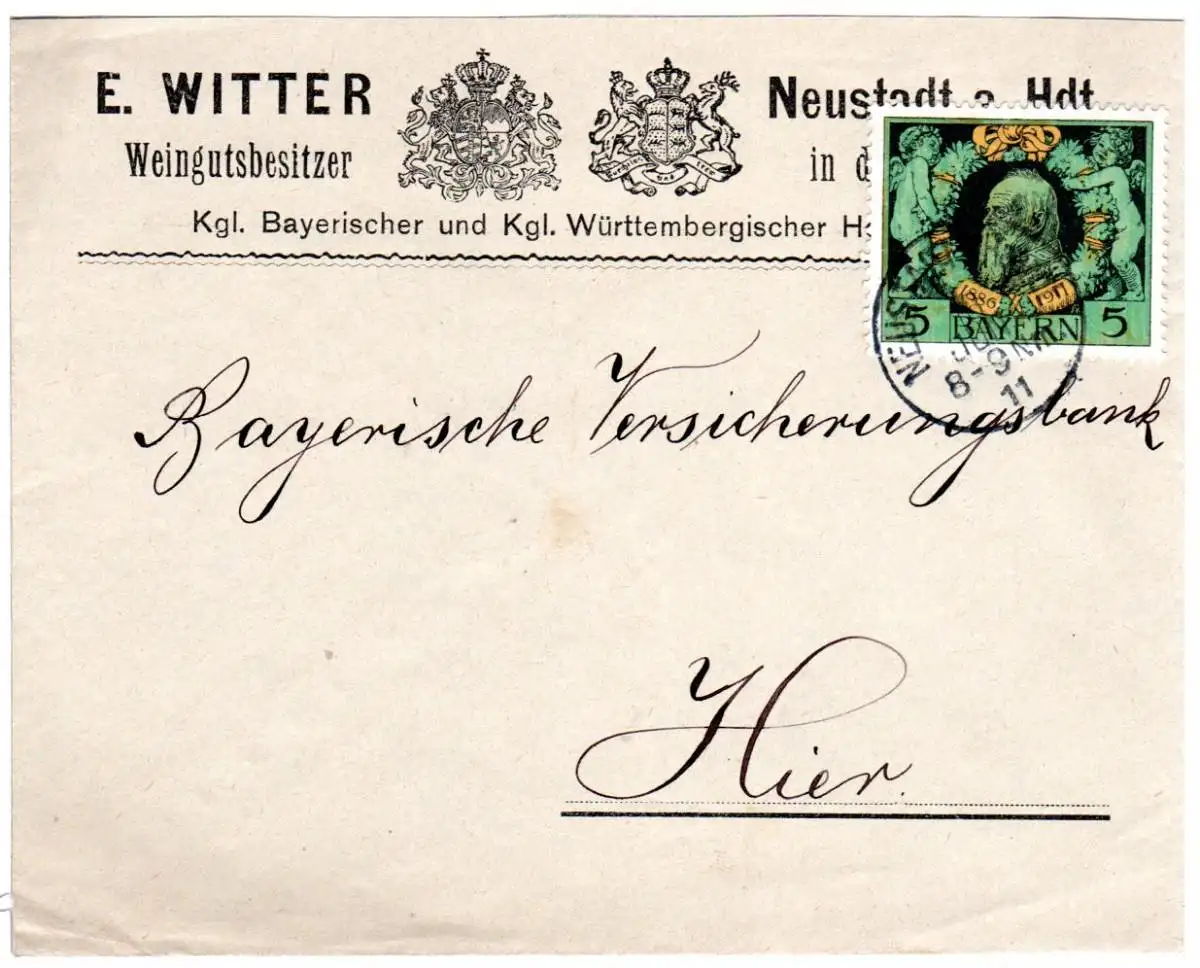 E. WITTER
Weingutsbesitzer
Neustadt a. Hdt.
in d
Kgl. Bayerischer und Kgl. Württembergischer H
1886 1911
5 BAYERN 5
8-9 NM
11
Bayerische Versicherungsbank
Hier.